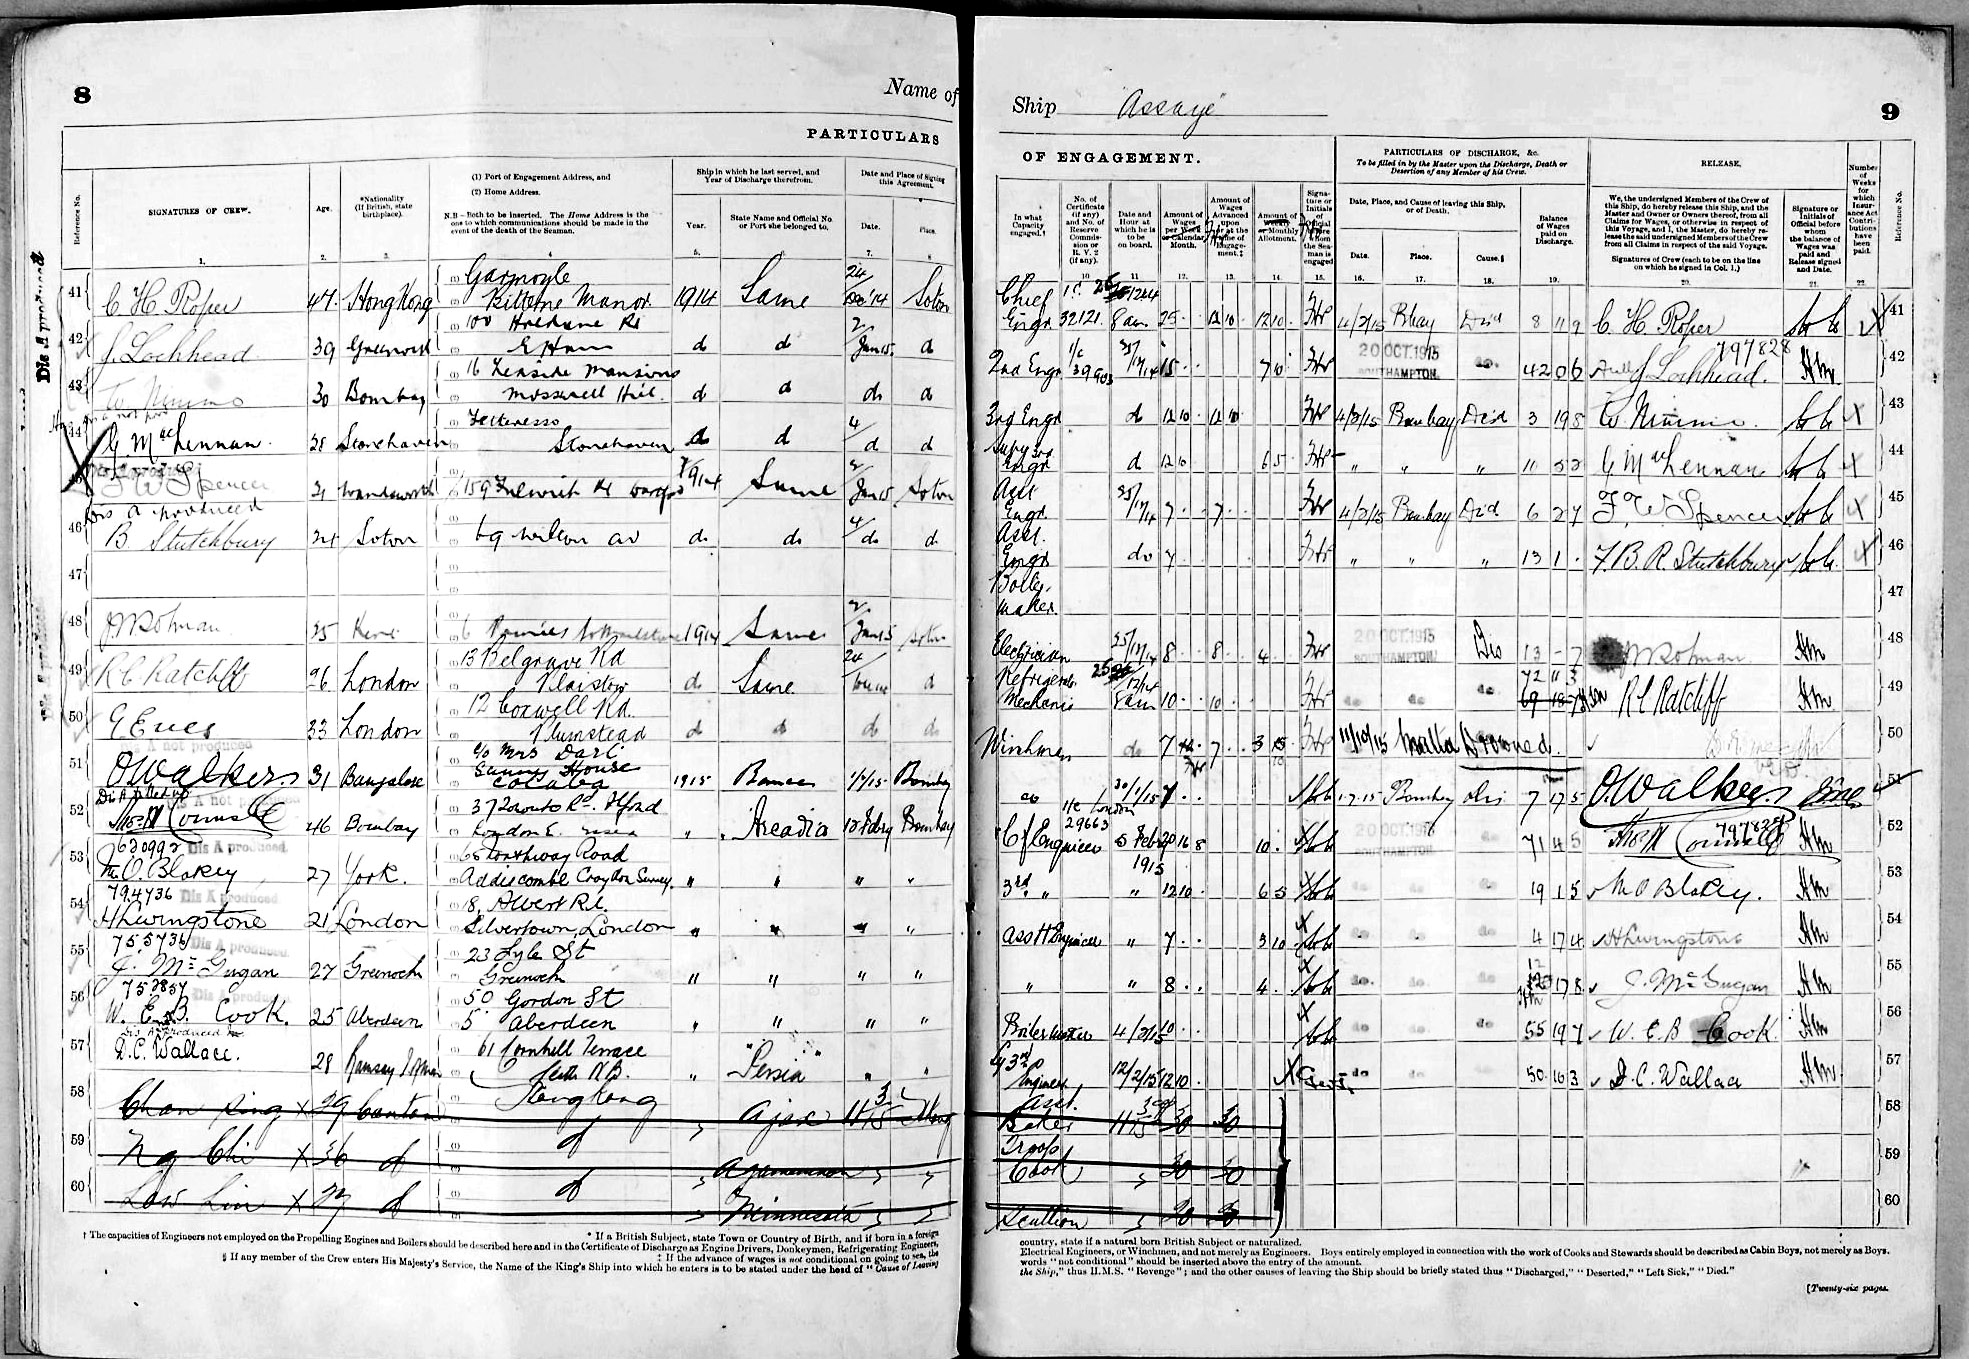 8
Name of
PARTICULARS
Reference No.
SIGNATURES OF CREW.
Age.
*Nationality
(If British, state
birthplace).
(1) Port of Engagement Address, and
(2) Home Address.
N.B—Both to be inserted. The Home Address is the
one to which communications should be made in the
event of the death of the Seaman.
Ship in which he last served, and
Year of Discharge therefrom.
Year.
State Name and Official No.
or Port she belonged to.
Date and Place of Signing
this Agreement.
Date.
Place.
1. 2. 3. 4 5. 6. 7. 8
Dis A produced
41 C H Roper 47 Hong Kong Garmoyle
Bitterne Manor 1914 Same 24/Dec '14 Soton
42 J. Lochhead 39 Greenock 100 Haldane Rd
E Ham d d 2/Jan 15 d
43 30 Bombay 16 Mansions
Muswell Hill d d do d
44 G MacLennan. Fetteresso
Stonehaven Stonehaven d d 4/d d
45 F W Spencer 21 Wandsworth 159 1914 Same 2/Jan 15 Soton
Dis A produced
46 B Stutchbury 24 Soton 69 Wilton Av do do 4/do do
47
48 35 1914 Same 2/Jan 15 Soton
49 R C Ratcliff 26 London 13 Belgrave Rd
Plaistow d Same 24/ d
50 G Eves 33 London 12 Coxwell Rd.
Plumstead d d d d
Dis A not produced
51 O Walkers. 31 Bangalore c/o Mrs
House
Colaba 1915 1/1/15 Bombay
52 46 Bombay 37 Rd. Ilford
London E. " Arcadia 12 Feby Bombay
620992 Dis A produced.
53 M. O. Blakey 27 York. 65 Northway Road
Addiscombe Croydon Surrey. " " " "
794736 Dis A produced
54 H Livingstone 21 London 18, Albert Rd
Silvertown, London " " " "
755736 Dis A produced
55 J. McGugan 27 Greenock 23 Lyle St
Greenock " " " "
752857 Dis A produced
56 W. E. B. Cook. 25 Aberdeen 50 Gordon St
5 Aberdeen " " " "
Dis A produced
57 D. C. Wallace. 28 Ramsay I of Man 61 Cornhill Terrace
Leith N.B. " "Persia" " "
58 Chan Sing x 29 Canton Hong Kong Ajax 11/3/15
59 Ng Chi x 36 d d Agamemnon
60 Low Lin x 27 d d Minnesota
* If a British Subject, state Town or Country of Birth, and if born in a foreign
† The capacities of Engineers not employed on the Propelling Engines and Boilers should be described here and in the Certificate of Discharge as Engine Drivers, Donkeymen, Refrigerating Engineers,
‡ If the advance of wages is not conditional on going to sea, the
§ If any member of the Crew enters His Majesty's Service, the Name of the King's Ship into which he enters is to be stated under the head of "Cause of Leaving
Ship "Assaye" 9
OF ENGAGEMENT.
PARTICULARS OF DISCHARGE, &c.
To be filled in by the Master upon the Discharge, Death or
Desertion of any Member of his Crew.
RELEASE.
In what
Capacity
engaged.†
No. of
Certificate
(if any)
and No. of
Reserve
Commis-
sion or
R.V. 2
(if any).
Date and
Hour at
which he is
to be
on board.
Amount of
Wages
per Week
or Calendar
Month.
Amount of
Wages
Advanced
upon
or at the
time of
Engage-
ment.‡
Amount of
Weekly
or Monthly
Allotment.
Signa-
ture or
Initials
of
Official
before
whom
the Sea-
man is
engaged
Date, Place, and Cause of leaving this Ship,
or of Death.
Date. Place. Cause.§
Balance
of Wages
paid on
Discharge.
We, the undersigned Members of the Crew of
this Ship, do hereby release this Ship, and the
Master and Owner or Owners thereof, from all
Claims for Wages, or otherwise in respect of
this Voyage, and I, the Master, do hereby re-
lease the said undersigned Members of the Crew
from all Claims in respect of the said Voyage.
Signatures of Crew (each to be on the line
on which he signed in Col. 1.)
Signature or
Initials of
Official before
whom
the balance of
Wages was
paid and
Release signed
and Date.
Number
of
Weeks
for
which
Insur-
ance Act
Contri-
butions
have
been
paid.
Reference No.
10 11 12. 13. 14. 15. 16. 17. 18. 19. 20. 21. 22.
Chief
Engr 32121. 8 am 25 12 10 12 10 4/2/15 Bbay Disd 8 11 9 C. H Roper 41
2nd Engr 39903 15 7 10 20 OCT. 1915
SOUTHAMPTON. do. 42 0 6 J Lochhead. Hm 797828 42
3rd Engr d 12 10 12 10 4/2/15 Bombay Disd 3 19 8 43
Supy 3rd
Engr d 12 10 6 5 " " " G MacLennan 44
Asst
Engr 7 7 4/2/15 Bombay Disd 6 2 7 F. W Spencer 45
Asst.
Engr do 7 " " " 13 1 F. B. R. Stutchbury 46
Boiler
maker. 47
Electrician 8 8 4 20 OCT. 1915
SOUTHAMPTON. Dis 13 - 7 Hm 48
Refrigerat.
Mechanic 8 am 10 10 do do do 72 11 3 R C Ratcliff Hm 49
Winchman do 7 7 3 15 11/10/15 Malta Drowned. 50
do 30/1/15 7 1-7-15 Bombay dis 7 17 5 O. Walkers. 51
Cf Engineer 1/c London
29663 5 Feb 1915 20 16 8 10 20 OCT 1915
SOUTHAMPTON. 71 4 5 Hm 52
3rd " " 12 10 6 5 19 1 5 M O Blakey. Hm 53
Asst Engineer " 7 3 10 4 17 4 H Livingstone Hm 54
" " 8 4 do. do do 17 8 J. McGugan Hm 55
Boilermaker 4/2/15 10 do do do 55 19 7 W. E B Cook Hm 56
3rd
Engineer 12/2/15 12 10 do do do 50 16 3 D. C. Wallace Hm 57
Asst.
Baker 11/3/15 30 30 58
Troops
Cook 30 30 59
Scullion 20 60
country, state if a natural born British Subject or naturalized.
Electrical Engineers, or Winchmen, and not merely as Engineers. Boys entirely employed in connection with the work of Cooks and Stewards should be described as Cabin Boys, not merely as Boys.
words "not conditional" should be inserted above the entry of the amount.
the Ship," thus H.M.S. "Revenge"; and the other causes of leaving the Ship should be briefly stated thus "Discharged," "Deserted," "Left Sick," "Died."
[Twenty-six pages.